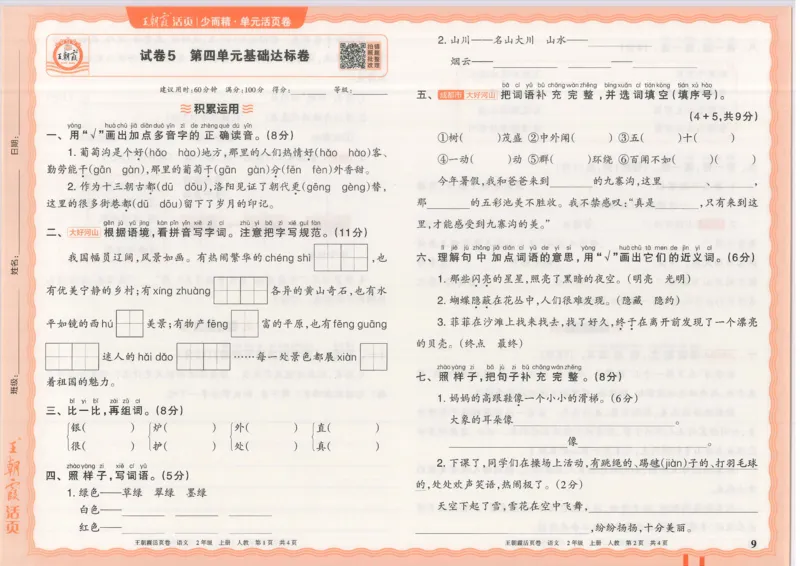 王朝霞 活页 | 少而精·单元活页卷
王朝霞
试卷5 第四单元基础达标卷
建议用时:60分钟 满分:100分 得分: 等级:
积累运用
一、用“√”画出加点多音字的正确读音。(8分)
1. 葡萄沟是个好(hǎo hào)地方,那里的人们热情好(hǎo hào)客、
勤劳能干(gān gàn),那里的葡萄干(gān gàn)分(fēn fèn)外香甜。
2. 作为十三朝古都(dū dōu),洛阳见证了朝代更(gēng gèng)替,
这里的很多街巷都(dū dōu)留下了岁月的印记。
二、大好河山 根据语境,看拼音写字词。注意把字写规范。(11分)
我国幅员辽阔,风景如画。有热闹繁华的 chéng shì ,也
有优美宁静的乡村;有 xíng zhuàng 各异的黄山奇石,也有水
平如镜的西 hú 美景;有物产 fēng 富的平原,也有 fēng guāng
迷人的 hǎi dǎo ……每一处景色都展 xiàn
着祖国的魅力。
三、比一比,再组词。(8分)
银( ) 炉( ) 外( ) 直( )
很( ) 护( ) 处( ) 真( )
四、照样子,写词语。(5分)
1. 绿色——草绿 翠绿 墨绿
白色——
红色——
王朝霞活页卷 语文 2年级 上册 人教 第1页 共4页
日期:
姓名:
班级:
王朝霞活页
2. 山川——名山大川 山水——
烟云—— ——
五、成都市 大好河山 把词语补充完整,并选词填空(填序号)。
(4+5,共9分)
①树( )茂盛 ②中外闻( ) ③五( )十( )
④一动( )动 ⑤群( )环绕 ⑥百闻不如( )( )
今年暑假,我和爸爸来到 的九寨沟,这里 、 ,
那 的五彩池美不胜收。我不禁感叹:“真是 ,只有来到这
里,才能感受到九寨沟的美。”
六、理解句中加点词语的意思,用“√”画出它们的近义词。(6分)
1. 那些闪亮的星星,照亮了黑暗的夜空。(明亮 光明)
2. 蝴蝶隐蔽在花丛中,人们很难发现。(隐藏 隐约)
3. 菲菲在沙滩上找来找去,找了好久,终于在离开前发现了一个漂亮
的贝壳。(终点 最终)
七、照样子,把句子补充完整。(8分)
1. 妈妈的高跟鞋像一个小小的滑梯。(6分)
大象的耳朵像 。
像 。
2. 下课了,同学们在操场上活动,有跳绳的、踢毽(jiàn)子的、打羽毛球
的,处处欢声笑语,热闹极了。(2分)
天空下起了雪,雪花在空中飞舞,
,纷纷扬扬,十分美丽。
王朝霞活页卷 语文 2年级 上册 人教 第2页 共4页
9